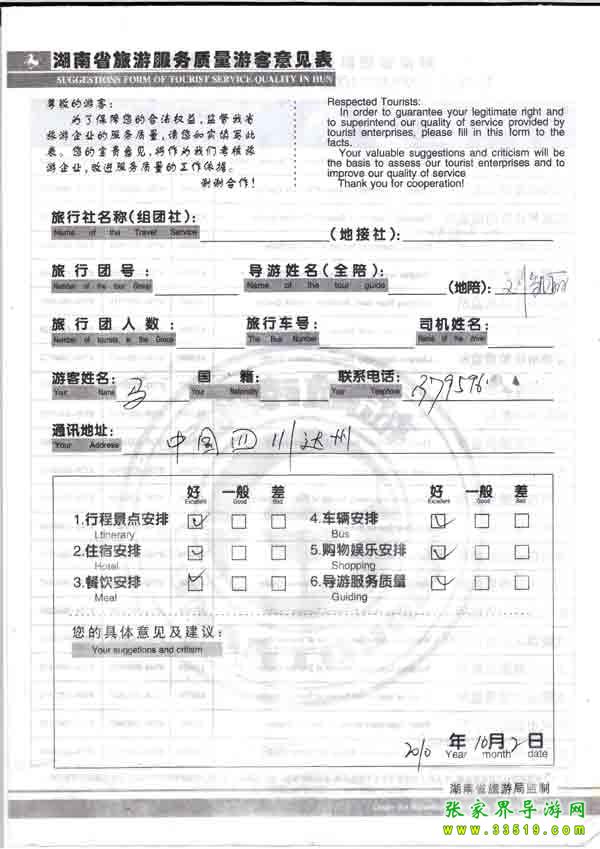 湖南省旅游服务质量游客意见表
SUGGESTIONS FORM OF TOURIST SERVICE QUALITY IN HUN
尊敬的游客:
为了保障您的合法权益,监督我省
旅游企业的服务质量,请您如实填写此
表。您的宝贵意见,将作为我们考核旅
游企业,改进服务质量的工作依据。
谢谢合作!
Respected Tourists:
In order to guarantee your legitimate right and
to superintend our quality of service provided by
tourist enterprises, please fill in this form to the
facts.
Your valuable suggestions and criticism will be
the basis to assess our tourist enterprises and to
improve our quality of service
Thank you for cooperation!
旅行社名称(组团社): (地接社):
Name of the Travel Service
旅行团号: 导游姓名(全陪): (地陪):
Number of the tour Group Name of the tour guide
旅行团人数: 旅行车号: 司机姓名:
Number of tourists, in the Group The Bus Number Name of the driver
游客姓名: 马 国籍: 联系电话: 379596
Your Name Your Nationality Your Telephone
通讯地址: 中国四川达州
Your Address
好 一般 差 好 一般 差
Excellent Good Bad Excellent Good Bad
1.行程景点安排 4.车辆安排
Ltinerary Bus
2.住宿安排 5.购物娱乐安排
Hotel Shopping
3.餐饮安排 6.导游服务质量
Meal Guiding
您的具体意见及建议:
Your suggetions and critism
2010 年 10月2日
Year month date
湖南省旅游局监制
张家界导游网
www.33519.com